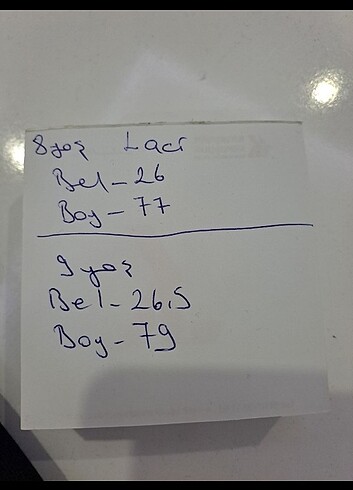 8 yaş Laci
Bel - 26
Boy - 77
9 yaş
Bel - 26.5
Boy - 79